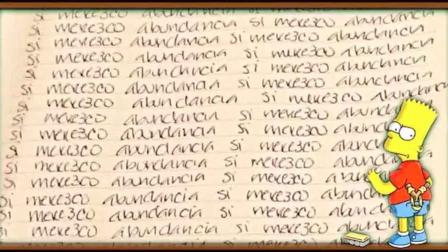 si merezco abundancia si merezco abundancia
si merezco abundancia si merezco abundancia
si merezco abundancia si merezco abundancia
si merezco abundancia si merezco abundancia
si merezco abundancia si merezco abundancia
si merezco abundancia si merezco abundancia
si merezco abundancia si merezco
si merezco abundancia si merezco
si merezco abundancia si merezco
si merezco abundancia si merezco
si merezco abundancia si merezco
si merezco abundancia si merezco
si merezco abundancia si merezco
si merezco abundancia si merezco
si merezco abundancia si merezco